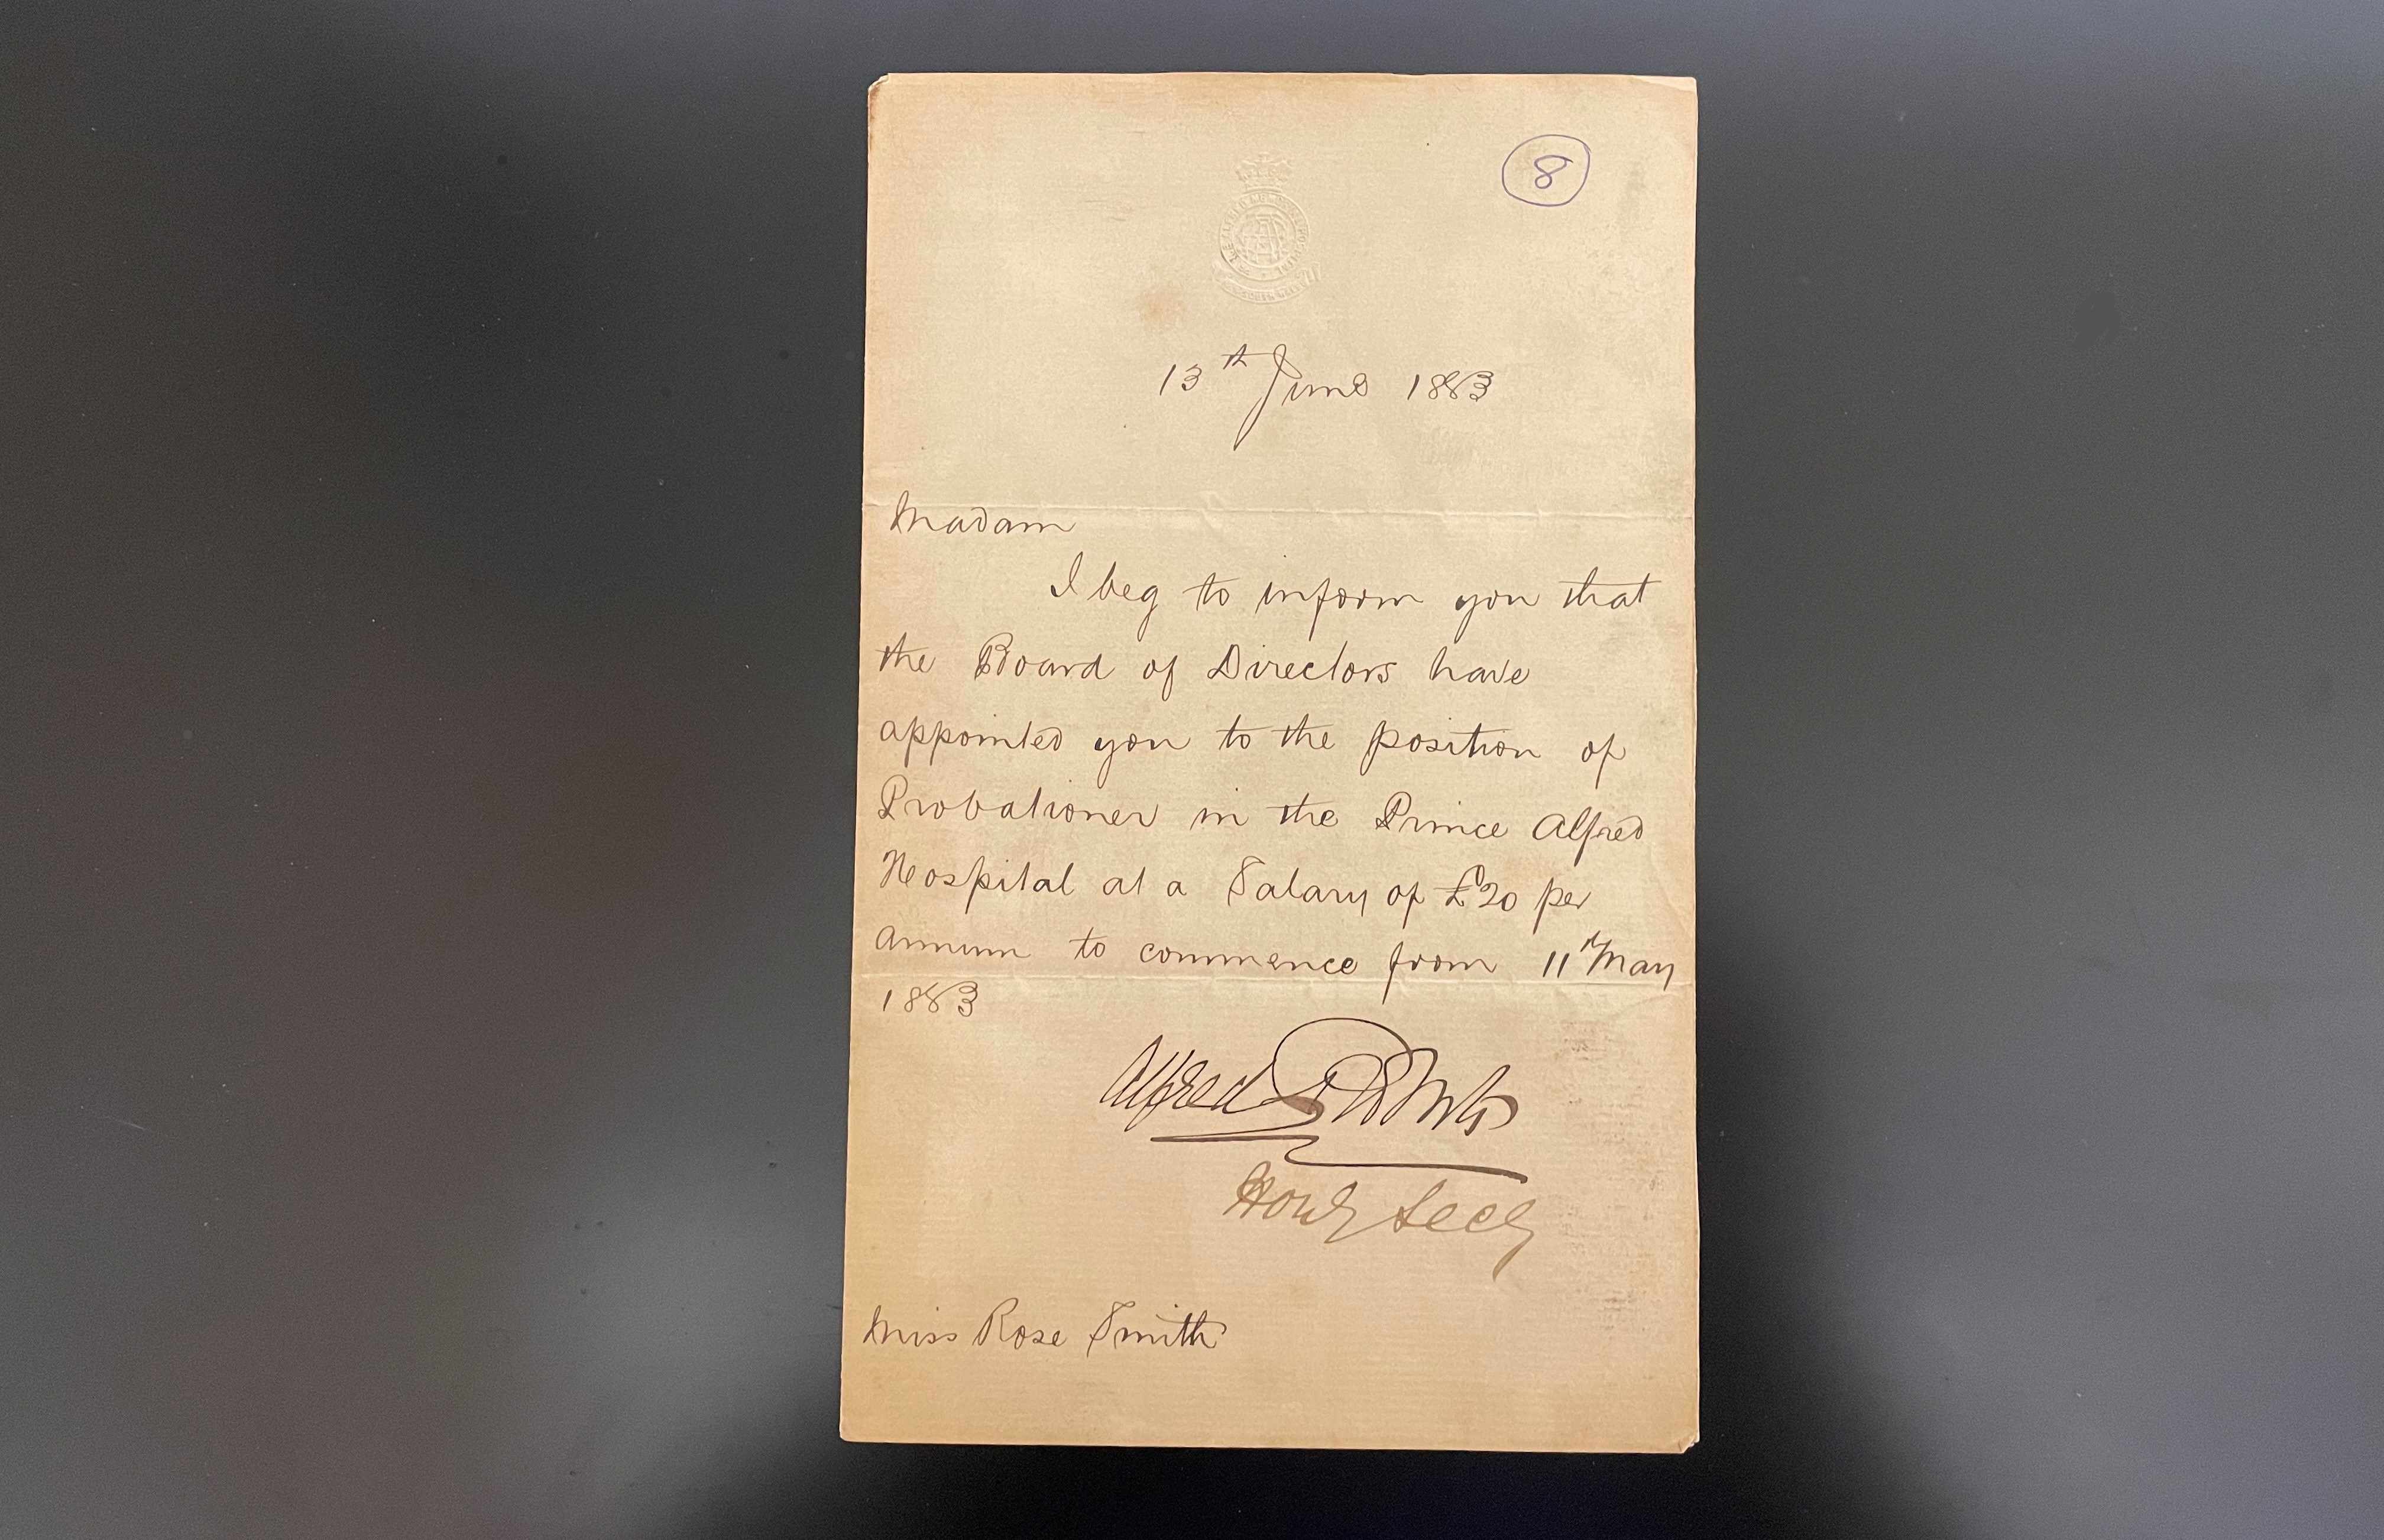 8
13th June 1883
Madam
I beg to inform you that
the Board of Directors have
appointed you to the position of
Probationer in the Prince Alfred
Hospital at a Salary of £20 per
annum to commence from 11th May
1883
Alfred
Hony Secy
Miss Rose Smith